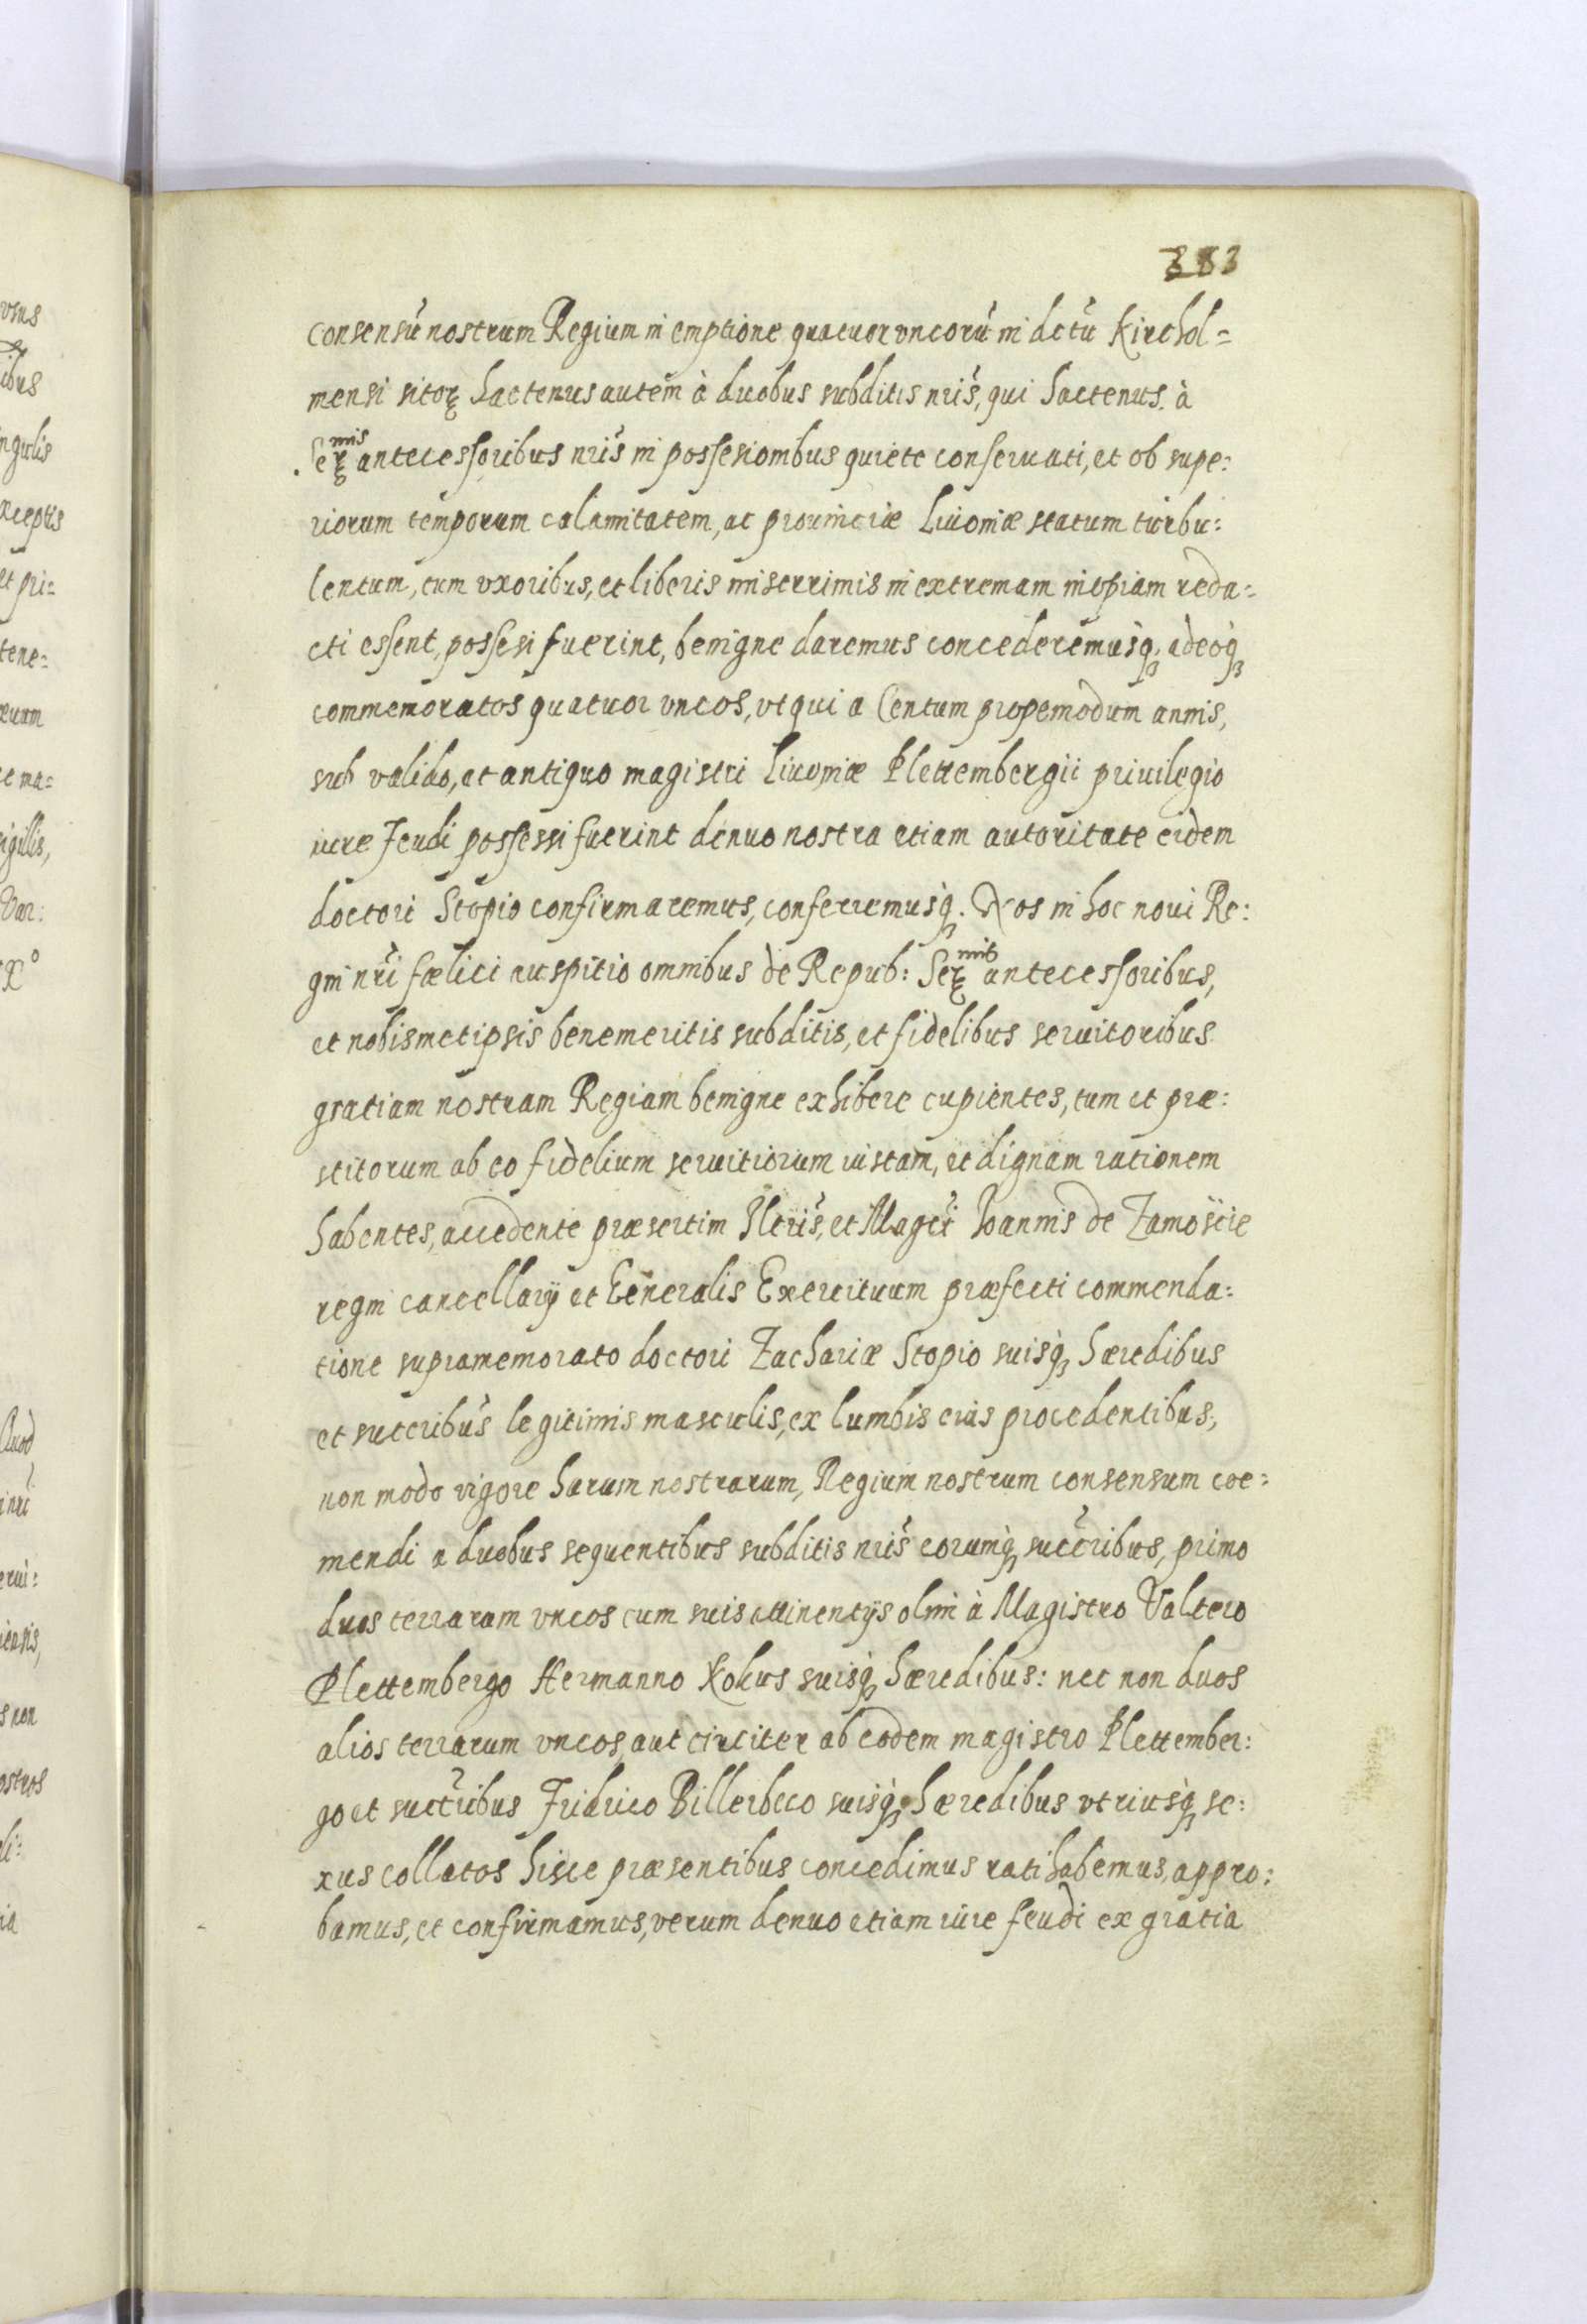 383
consensũ nostrum Regium in emptione quatuor vncorũ in dctũ Kirchol=
mensi sitoꝝ hactenus autem à duobus subditis nrĩs, qui hactenus à
Seꝝmis antecessoribus nrĩs in possesionibus quiete conseruati, et ob supe:
riorum temporum calamitatem, ac prouinciæ Liuoniæ statum turbu:
lentum, cum vxoribus, et liberis miserrimis in extremam inopiam reda:
cti essent, possesi fuerint, benigne daremus concederemusq̃, adeoq̃
commemoratos quatuor vncos, vt qui a Centum propemodum annis,
sub valido, at antiquo magistri Liuoniæ Plettembergii priuilegio
iure Feudi possessi fuerint denuo nostra etiam autoritate eidem
doctori Stopio confirmaremus, conferremusq̃. Nos in hoc noui Re:
gni nrĩ fœlici auspitio omnibus de Repub: Seꝝmis antecessoribus,
et nobismetipsis benemeritis subditis, et fidelibus seruitoribus
gratiam nostram Regiam benigne exhibere cupientes, tum et præ:
stitorum ab eo fidelium seruitiorum iustam, et dignam rationem
habentes, accedente præsertim Iltrĩs, et Magcĩ Ioannis de Zamoscie
regni cancellarij et Generalis Exercituum præfecti commenda:
tione supramemorato doctori Zachariæ Stopio suisq̃ hæredibus
et succribũs legitimis masculis, ex lumbis eius procedentibus,
non modo vigore harum nostrarum, Regium nostrum consensum coe:
mendi a duobus sequentibus subditis nrĩs eorumq̃ succr̃ibus, primo
duos terrarum vncos cum suis attinentijs olim à Magistro Valtero
Plettembergo Hermanno Kokus suisq̃ hæredibus: nec non duos
alios terrarum vncos aut circiter ab eodem magistro Plettember:
go et succr̃ibus Fridrico Billerbeco suisq̃ hæredibus vtriusq̃ se:
xus collatos hisce præsentibus concedimus ratihabemus, appro:
bamus, et confirmamus, verum denuo etiam iure feudi ex gratia